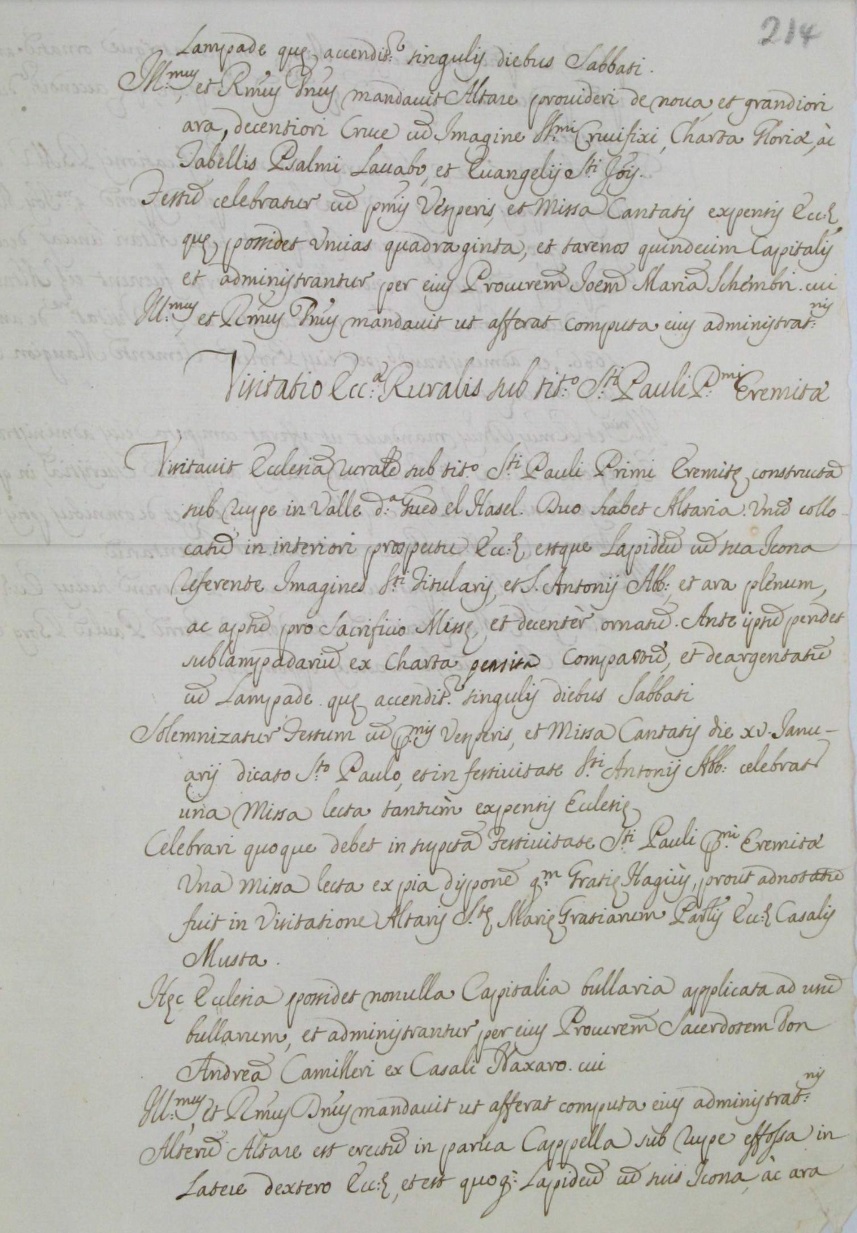 214
Lampade quę accendit.r singulis diebus Sabbati.
Ill.mus et Rmus Dnus mandavit Altare provideri de nova, et grandiori
ara, decentiori Cruce cū Imagine S.mi Crucifixi, Charta Gloriæ, àc
Tabellis Psalmi Lavabo, et Evangelij S.ti Jois.
Festū celebratur cū pmis Vesperis, et Missa Cantatis expensis Ecc:ę
quę possidet Uncias quadraginta, et tarenos quindecim Capitalis
et administrantur per eius Procurem Joem Mariā Schembri. cui
Ill.mus et Rmus Dnus mandavit ut afferat computa eius administrat.nis
Visitatio Ecc.æ Ruralis sub tit.o S.ti Pauli P.mi Eremitæ
Visitavit Ecclesiā ruralē sub tit.o S.ti Pauli Primi Eremitę constructā
sub rupe in Valle d.a Gued el Hasel. Duo habet Altaria. Unū collo-
catū in interiori prospectu Ecc:ę, estque Lapideū cū sua Icona
referente Imagines S.ti Titularis, et S. Antonij Abb: et ara plenum,
ac aptū pro Sacrificio Missę, et decentèr ornatū. Ante ipsū pendet
sublampadariū ex Charta pensita compactū, et deargentatū
cū Lampade quę accendit.r singulis diebus Sabbati
Solemnizatur Festum cū pmis Vesperis, et Missa Cantatis die xv. Janu-
arij dicato S.to Paulo, et in festivitate S.ti Antonij Abb: celebrat.r
una Missa lecta tantùm expensis Ecclesię
Celebrari quoque debet in supctā Festivitate S.ti Pauli p.mi Eremitæ
Una missa lecta ex pia dispone q.m Gratię Hagius, prout adnotatū
fuit in Visitatione Altaris S.tę Marię Gratiarum Partis Ecc:ę Casalis
Musta.
Hęc Ecclesia possidet nonulla Capitalia bullaria applicata ad unū
bullarum, et administrantur per eius Procurem Sacerdotem Don
Andreā Camilleri ex Casali Naxaro. cui
Ill.mus et Rmus Dnus mandavit ut afferat computa eius administrat.nis
Alterū Altare est erectū in parva Cappella sub rupe effossa in
Latere dextero Ecc:ę, et est quoq: Lapideū cū suis Icona, àc ara